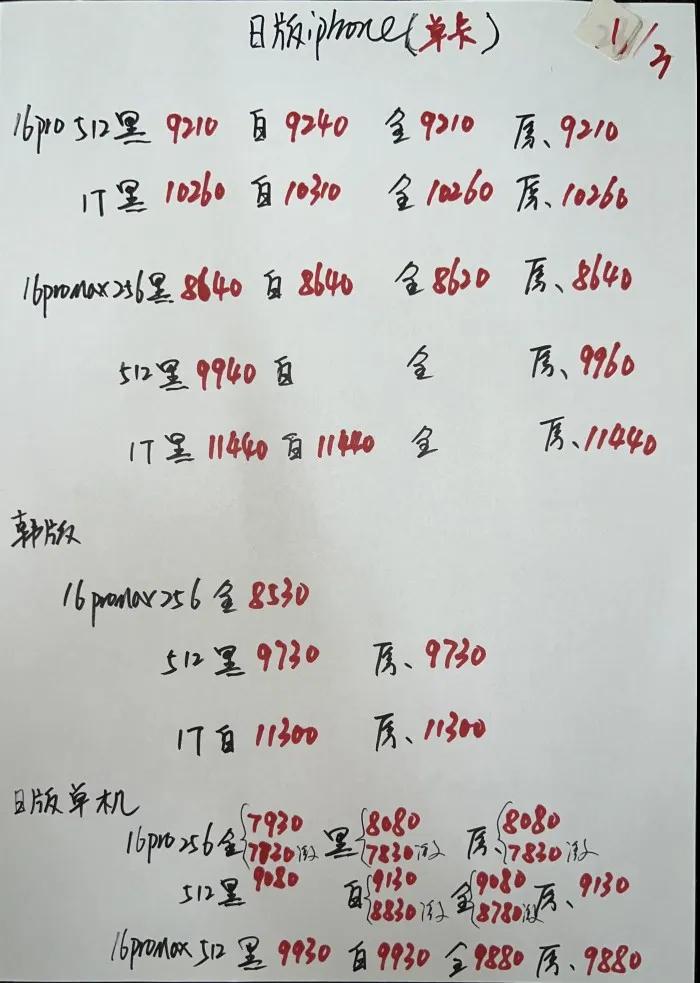 日版iphone(单卡) 21/3
16pro 512黑 9210 白 9240 金 9210 原、9210
1T黑 10260 白 10310 金 10260 原、10260
16promax256黑 8640 白 8640 金 8620 原、8640
512黑 9940 白 金 原、9960
1T黑 11440 白 11440 金 原、11440
韩版
16promax256金 8530
512黑 9730 原、9730
1T白 11300 原、11300
日版单机
16pro256金{7930 黑{8080 原{8080
7830激 7830激 7830激
512黑 9080 白{9130 金{9080 原、9130
8830激 8780激
16promax512黑 9930 白 9930 金 9880 原、9880